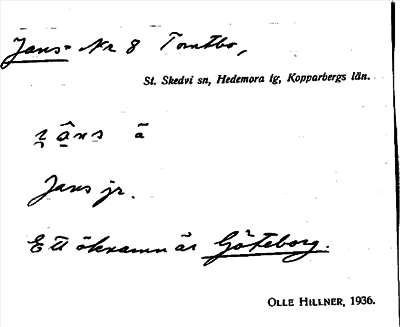 Jans- Nr 8 Tomtbo,
St. Skedvi sn, Hedemora tg, Kopparbergs län.
ā
Jans jr.
Ett åkernamn är Göteborg.
OLLE HILLNER, 1936.